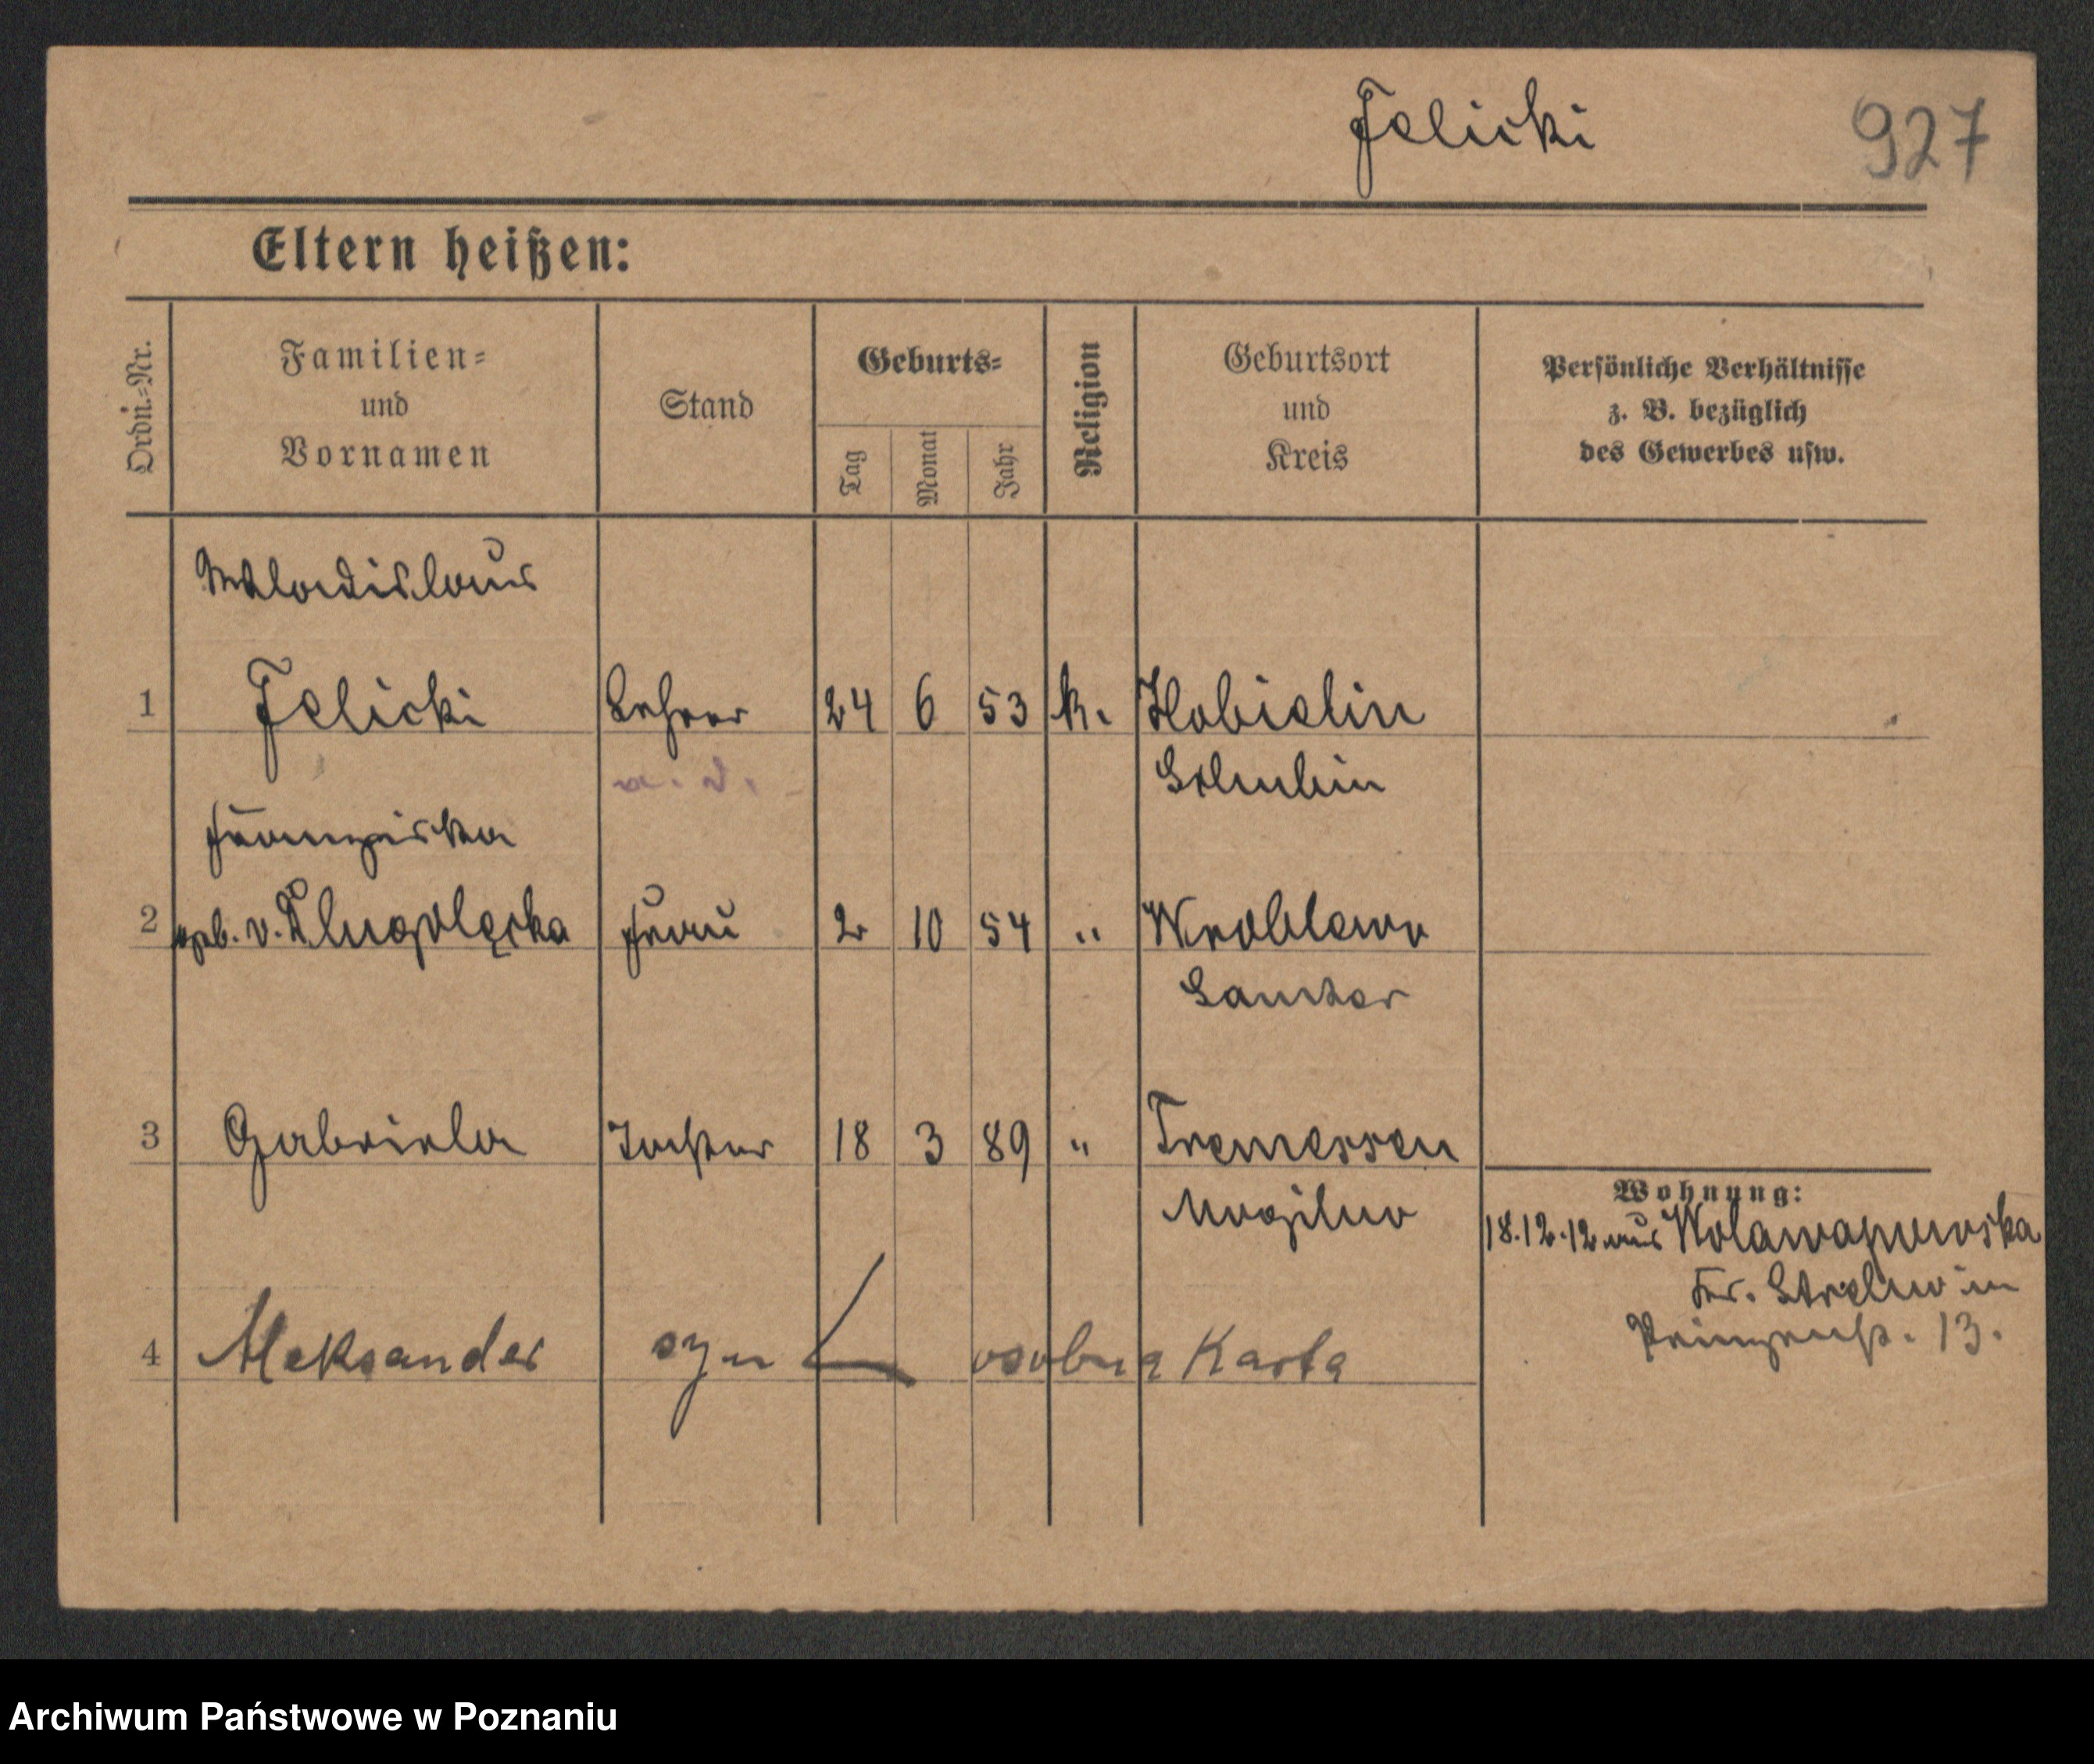 Jelicki 927
Eltern heißen:
Ordn.=Nr.
Familien=
und
Vornamen
Stand
Geburts=
Tag
Monat
Jahr
Religion
Geburtsort
und
Kreis
Persönliche Verhältnisse
z. B. bezüglich
des Gewerbes usw.
Wladislaus
1 Jelicki Lehrer 24 6 53 k. Kobielin
a. D. Schubin
Franziska
2 geb. v. Dlugolęcka Frau 2 10 54 " Wroblewo
Samter
3 Gabriela Tochter 18 3 89 " Tremessen
Mogilno
Wohnung:
18.12.12 aus Wolawapowska
Kr. Strelno in
Prinzenstr. 13.
4 Aleksander syn osobna Karta
Archiwum Państwowe w Poznaniu